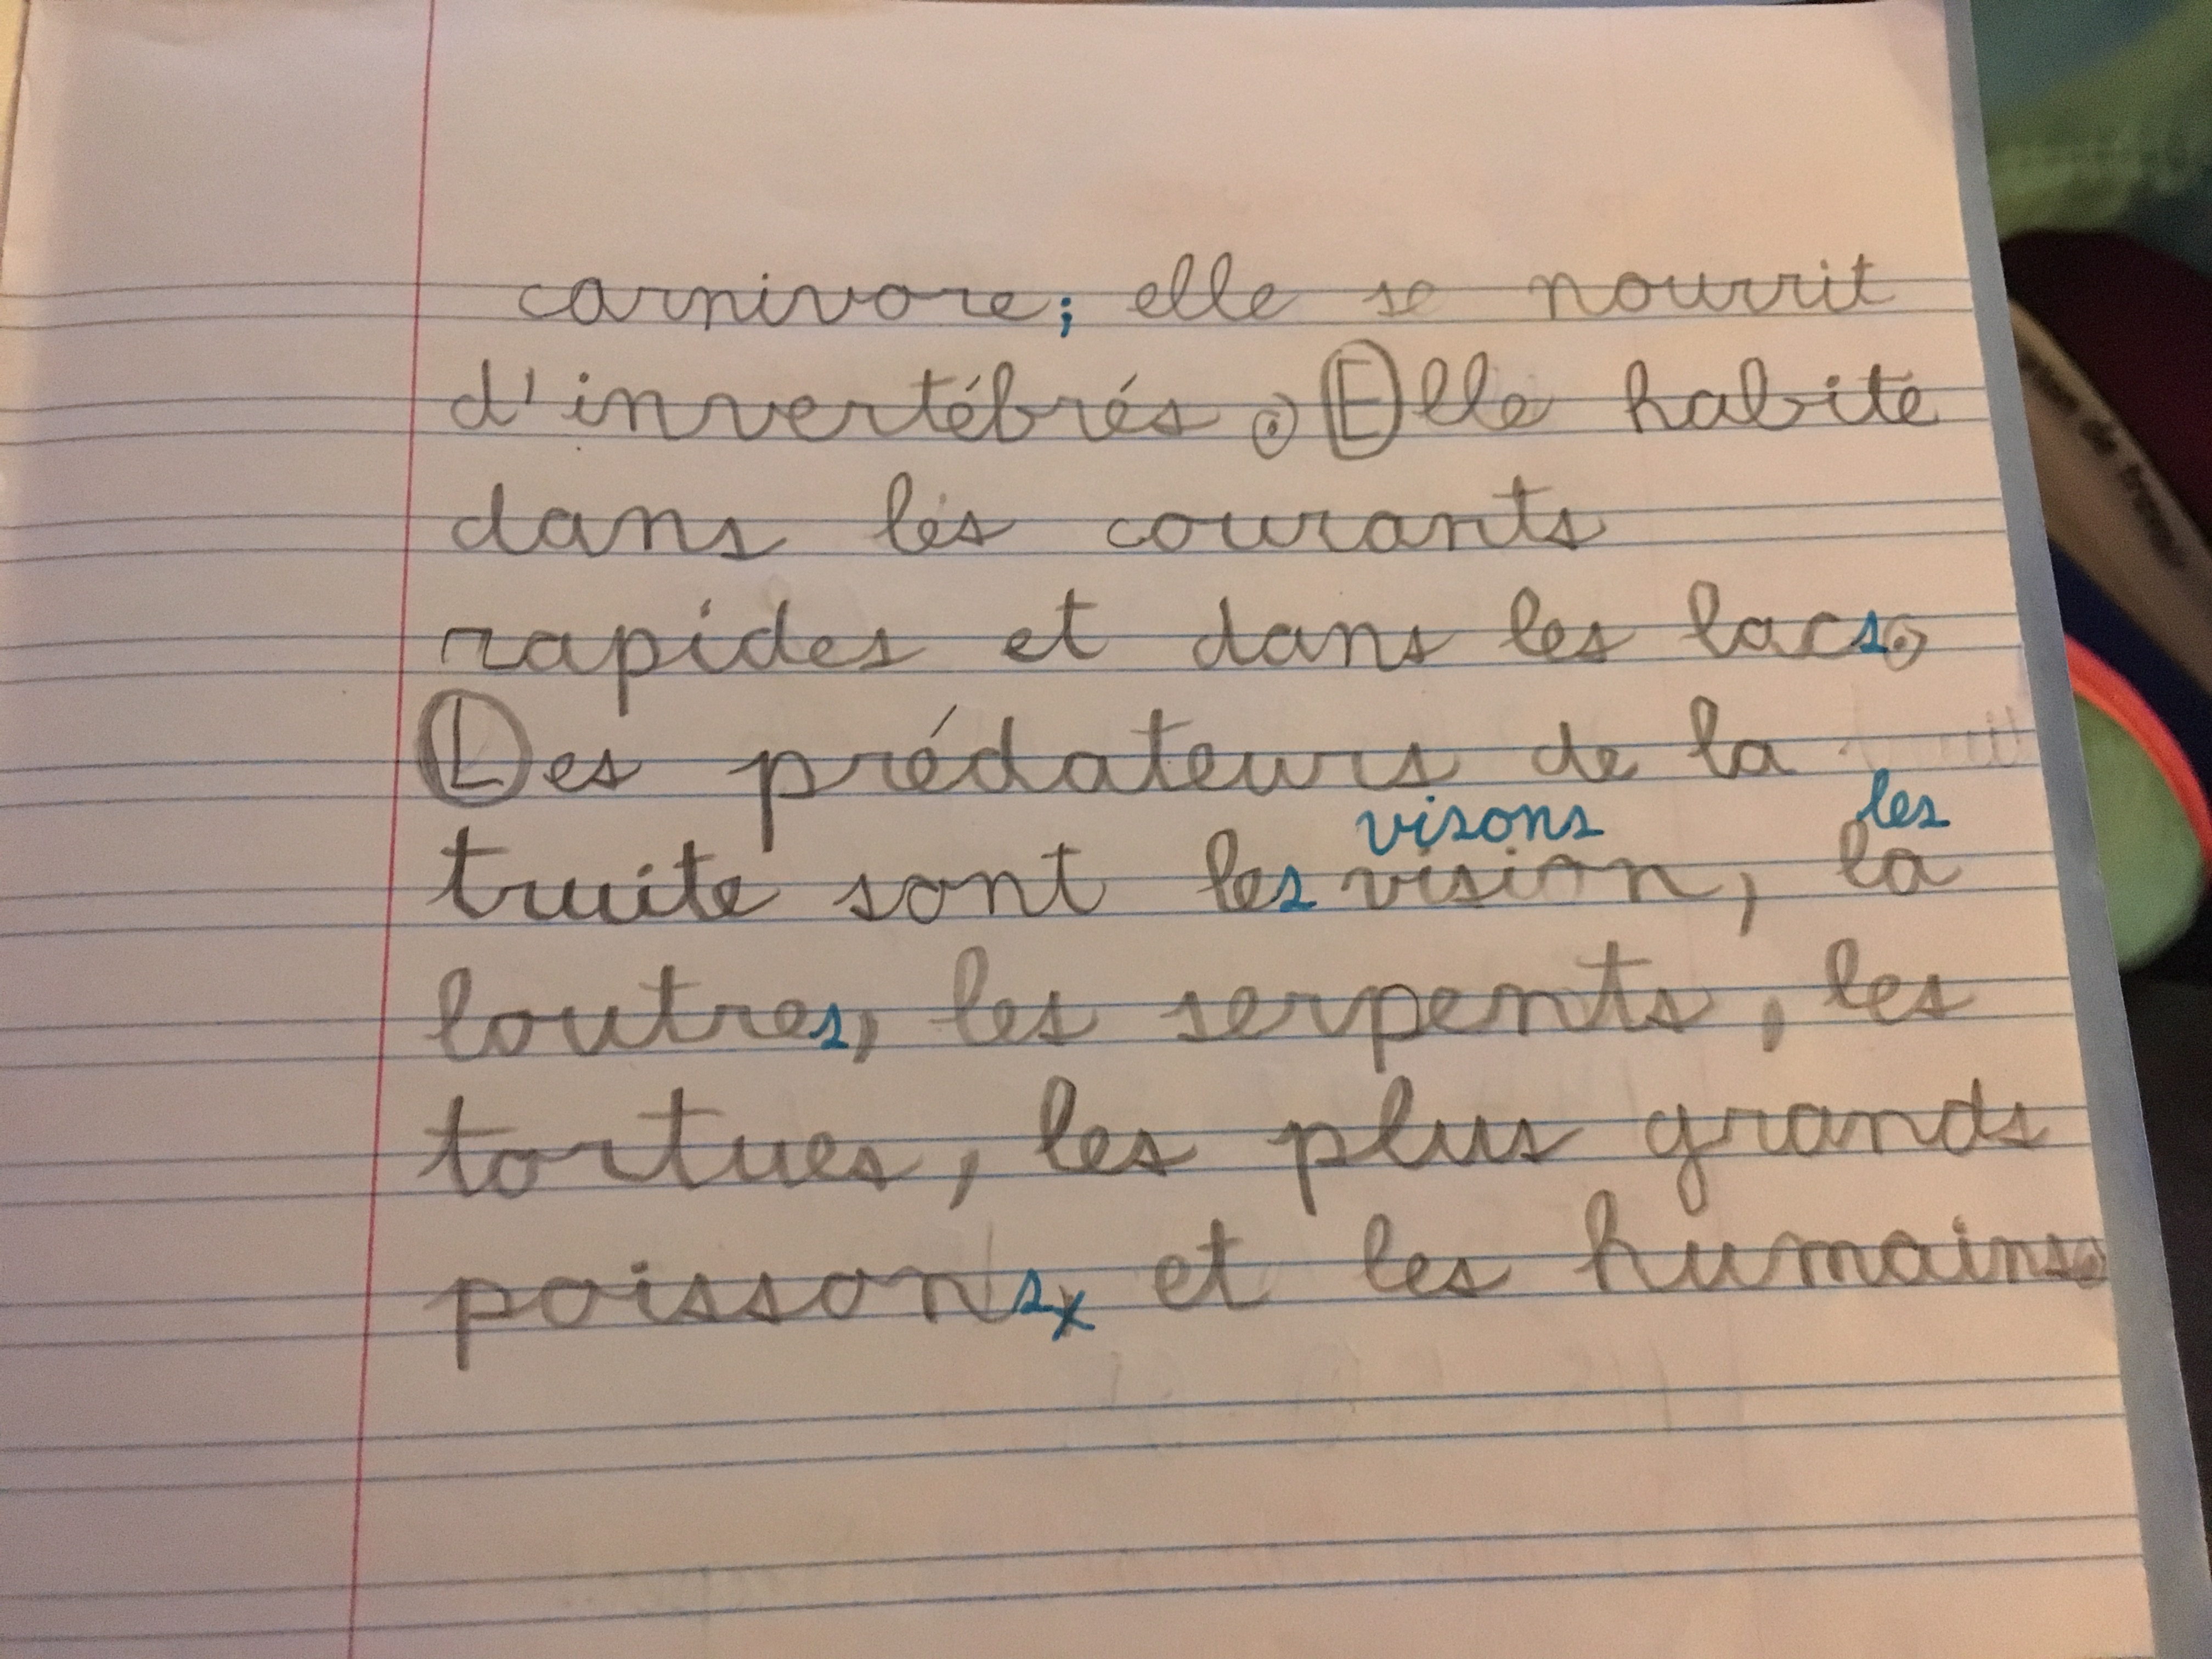 carnivore; elle se nourrit
d'invertébrés. Elle habite
dans les courants
rapides et dans les lacs.
Les prédateurs de la
visons les
truite sont les vision, la
loutres, les serpents, les
tortues, les plus grands
poissons x et les humains.